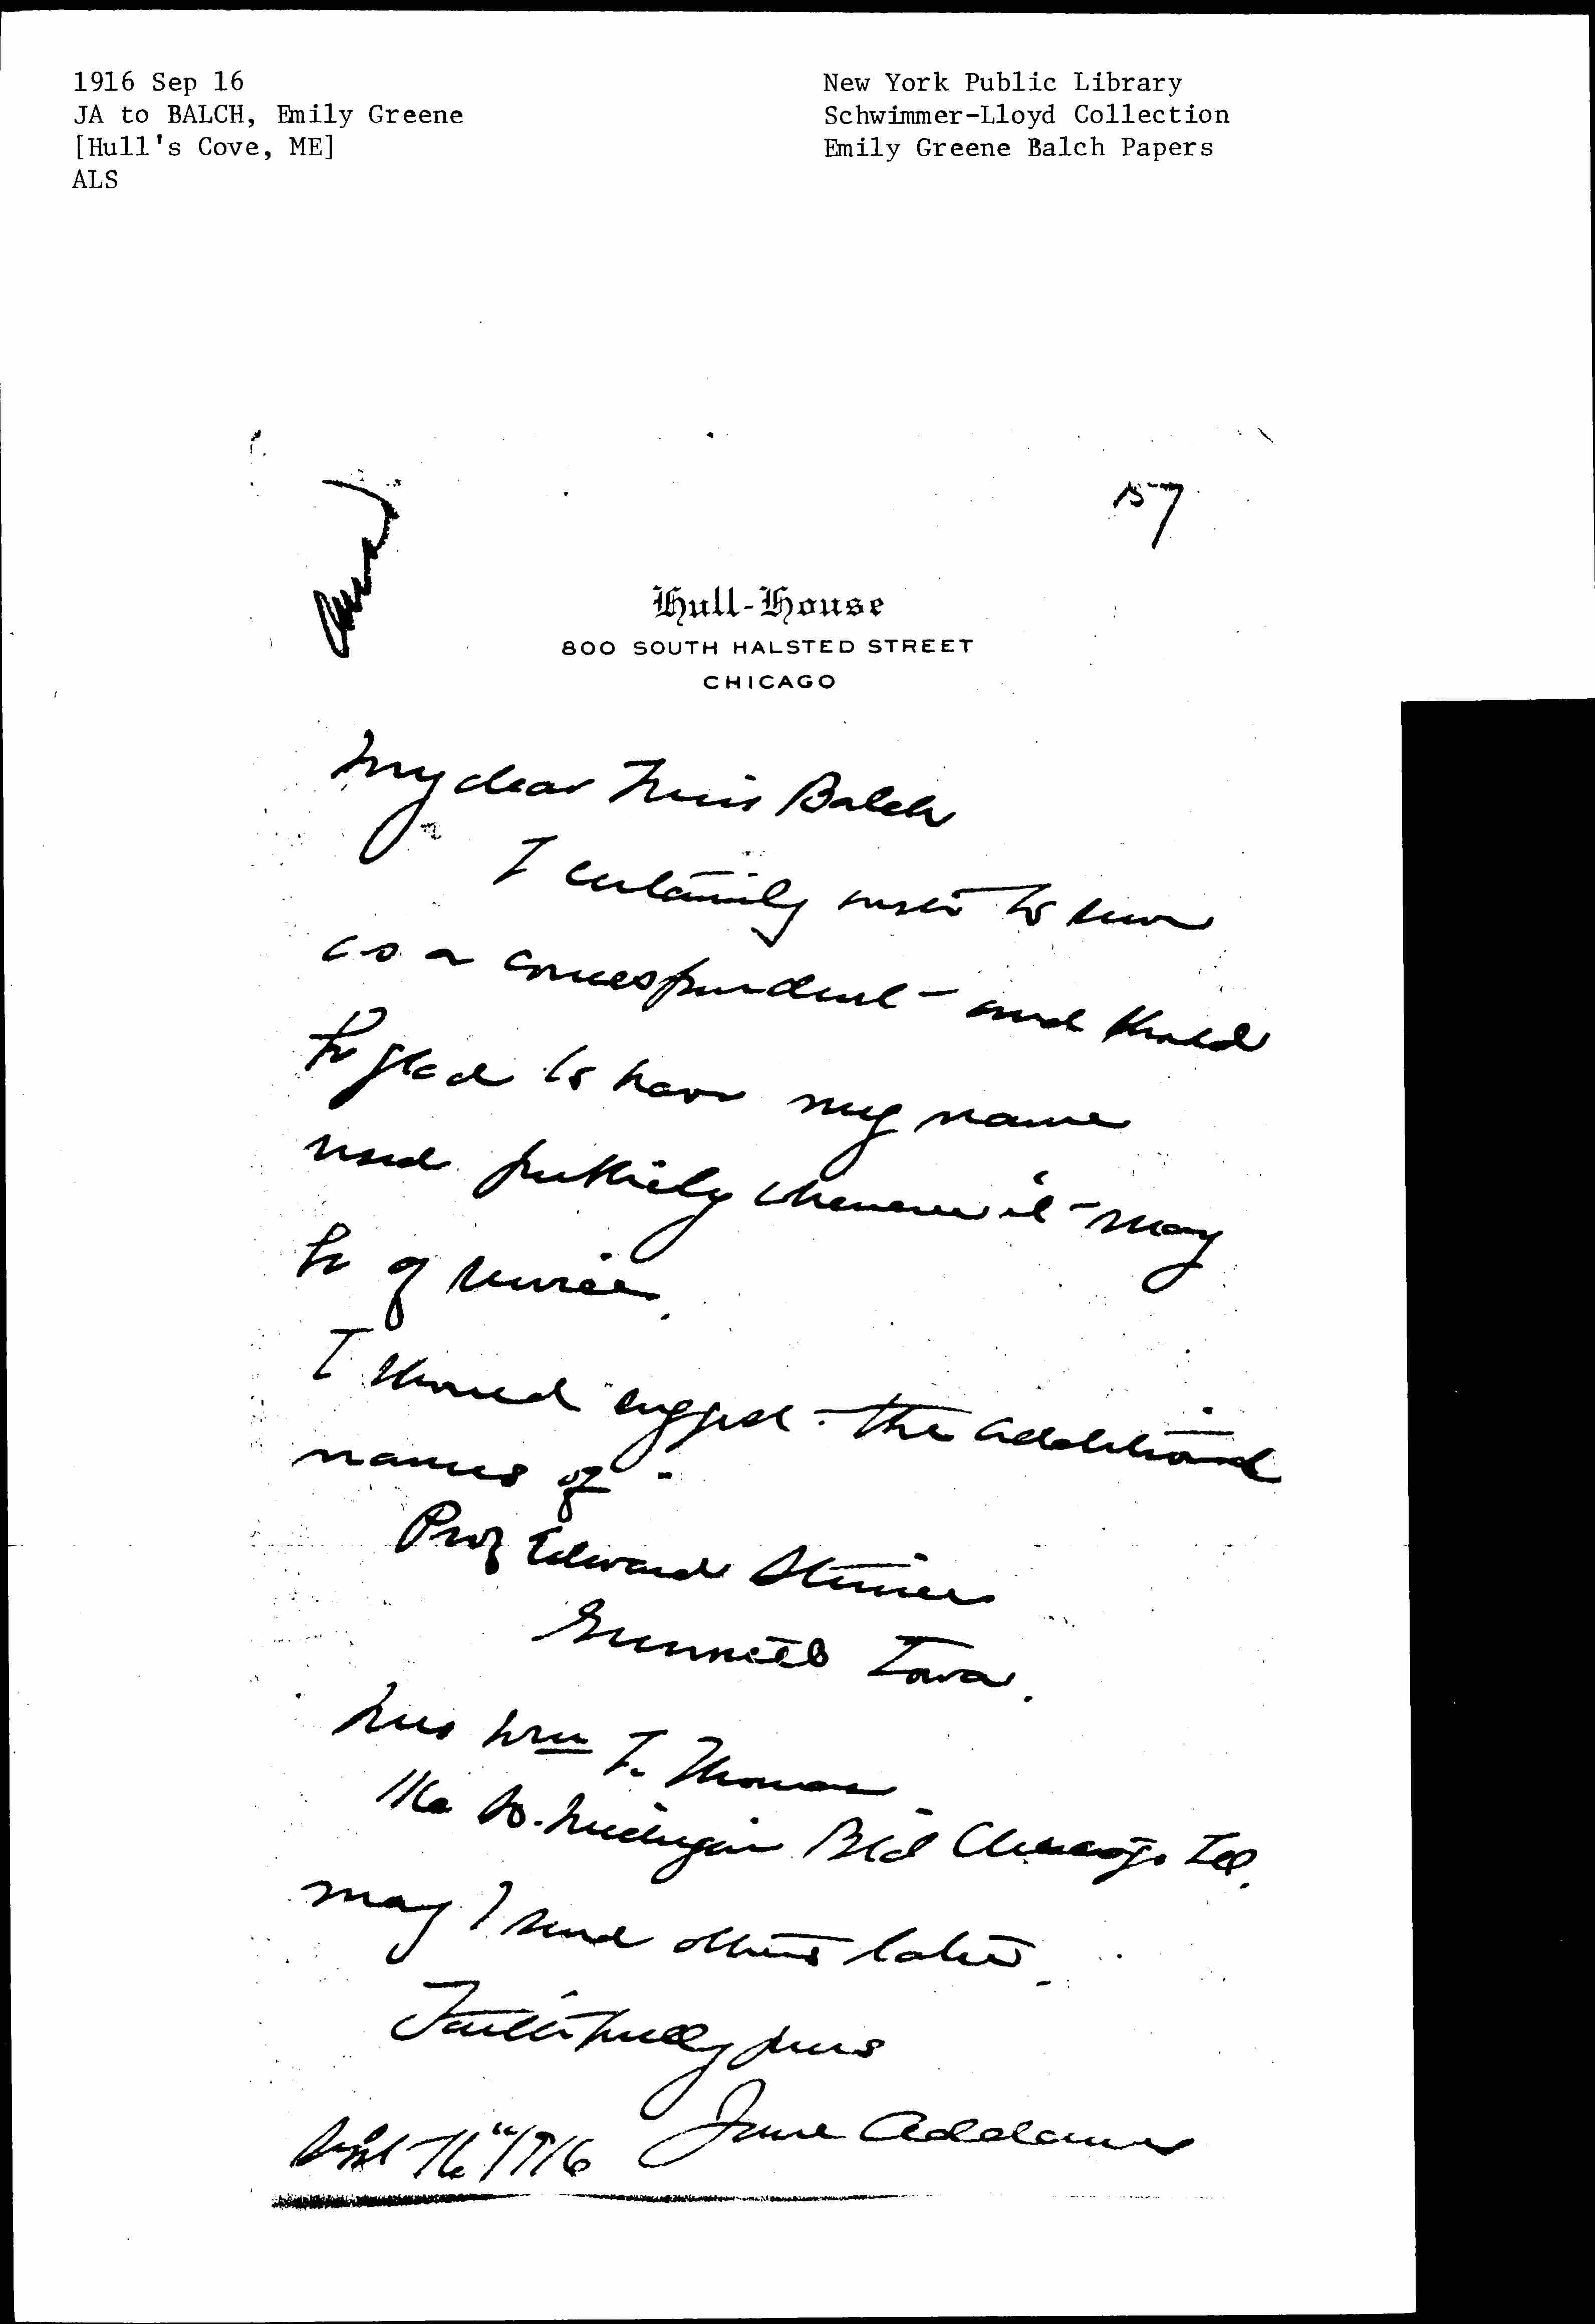 1916 Sep 16
JA to BALCH, Emily Greene
[Hull's Cove, ME]
ALS
New York Public Library
Schwimmer-Lloyd Collection
Emily Greene Balch Papers
157
Hull-House
800 SOUTH HALSTED STREET
CHICAGO
My dear Miss Balch
I certainly wish to serve
as a correspondent - and should
be glad to have my name
used publicly whenever it may
be of service.
I should suggest the additional
names of -
Prof Edward Steiner
Grinnell Iowa.
Mrs Wm I. Thomas
116a So. Michigan Bld Chicago Ill.
May I send others later.
Faithfully yours
Jane Addams
Sept 16" 1916